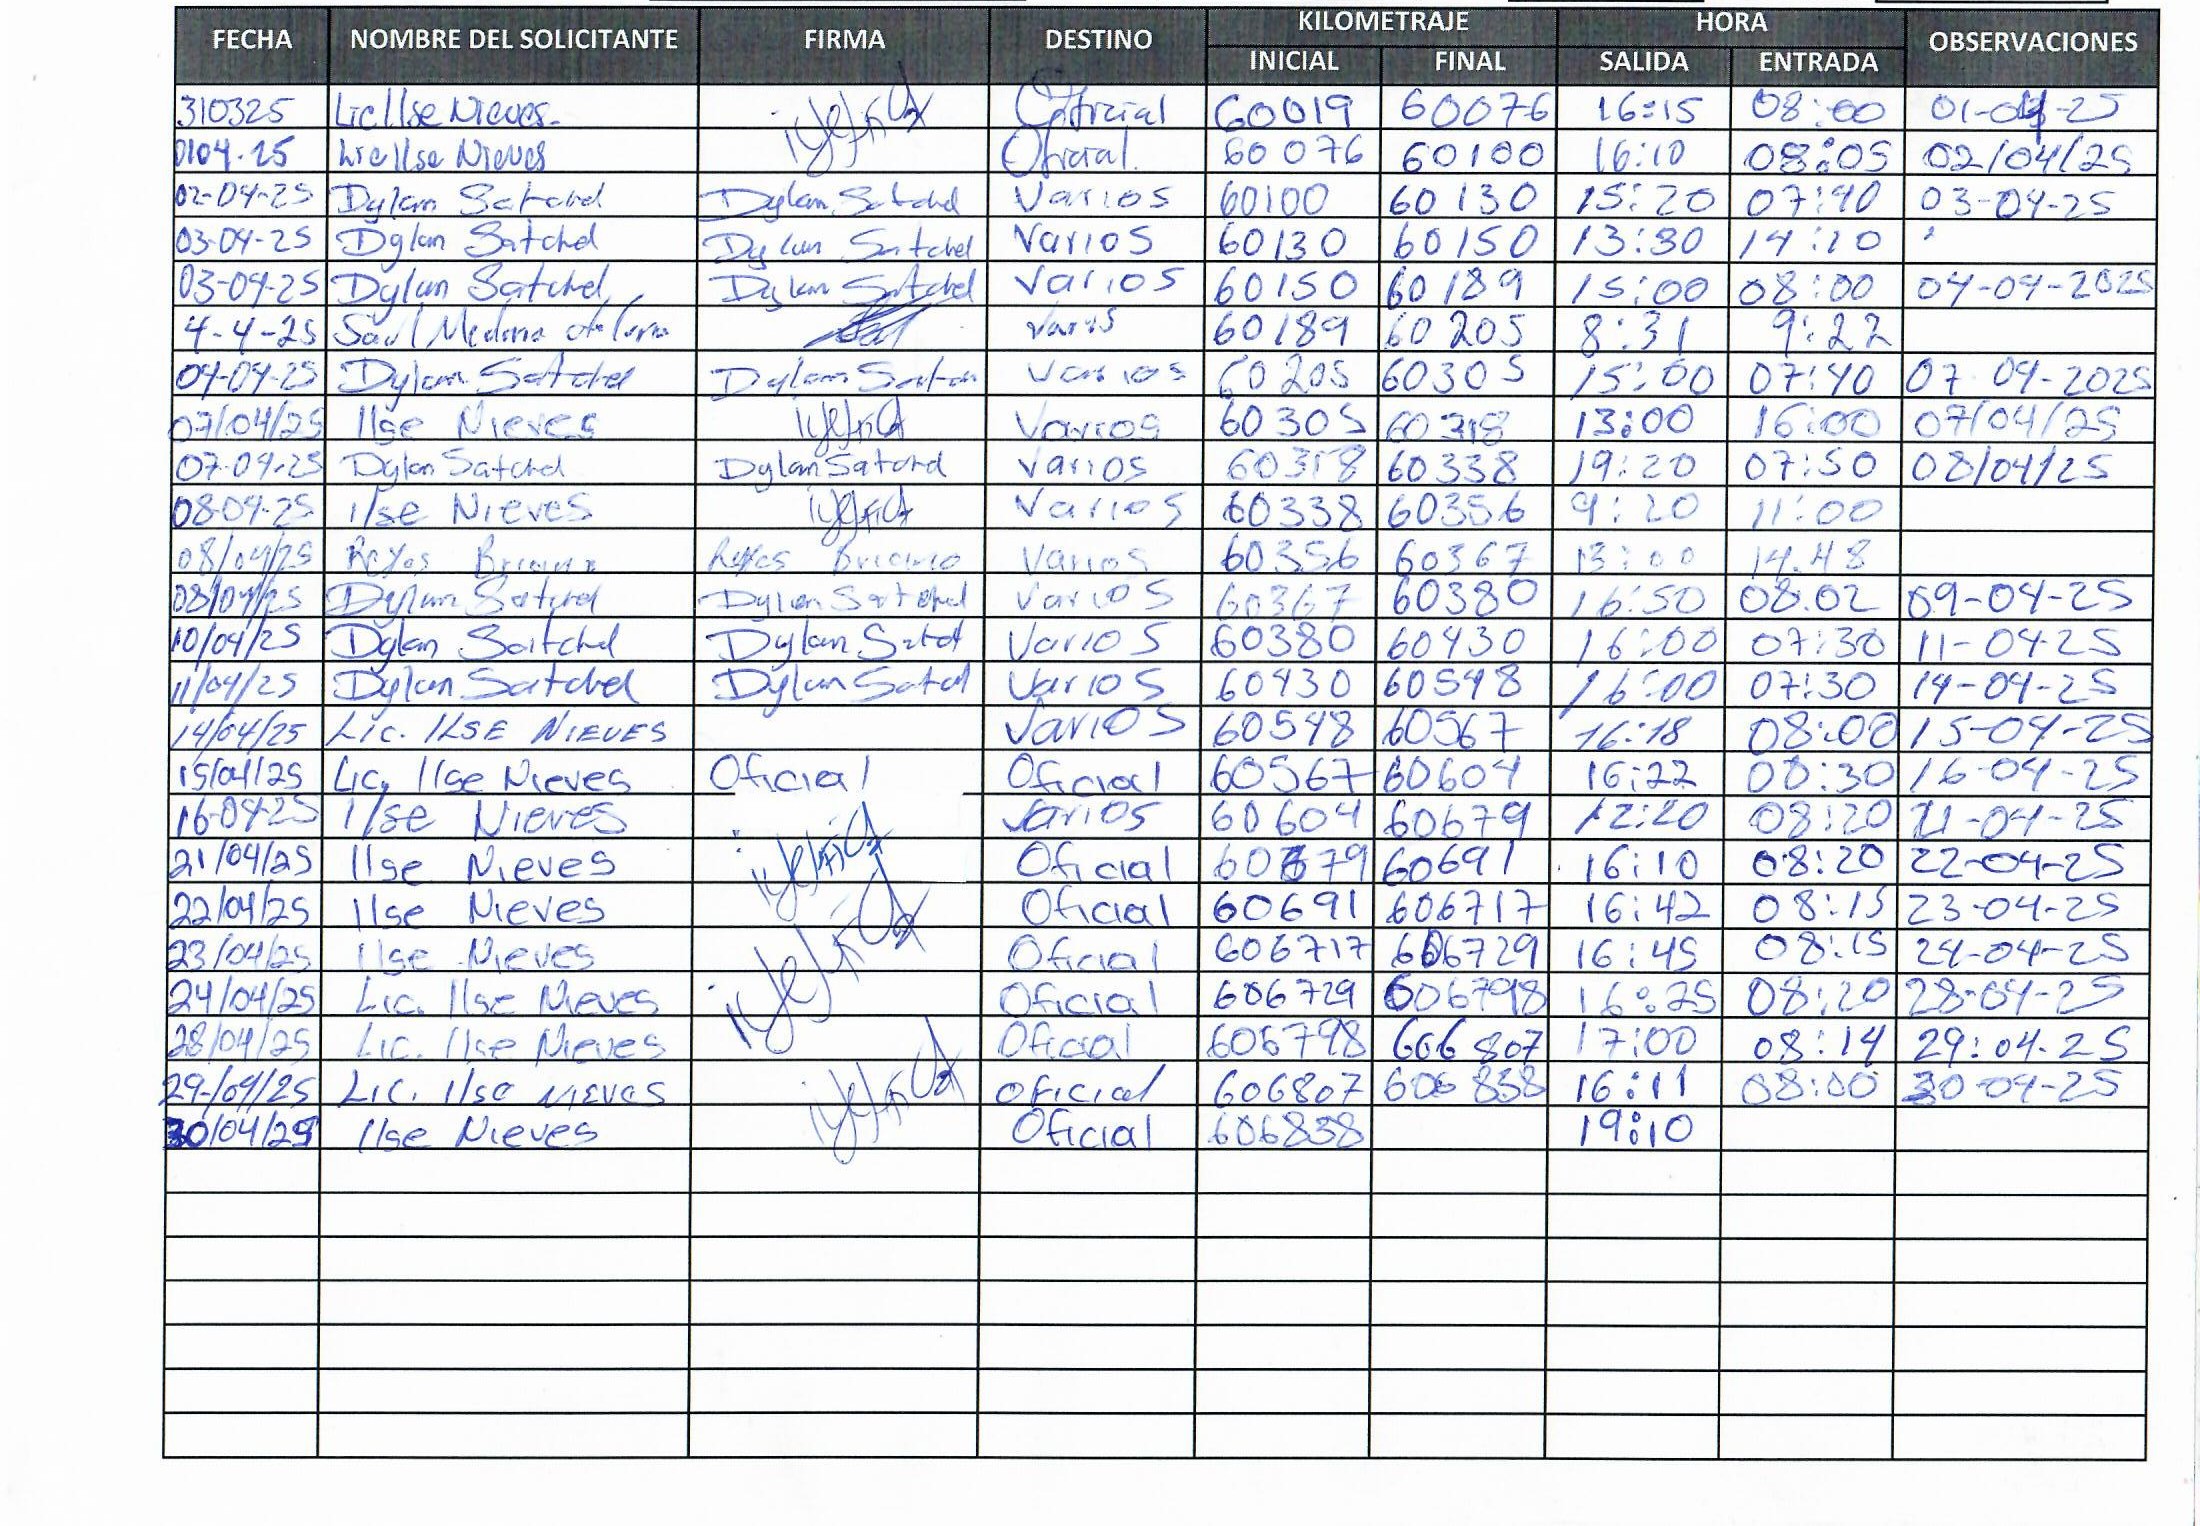 FECHA NOMBRE DEL SOLICITANTE FIRMA DESTINO KILOMETRAJE HORA OBSERVACIONES
INICIAL FINAL SALIDA ENTRADA
310325 Lic Ilse Nieves. Oficial 60019 60076 16:15 08:00 01-04-25
0104.25 Lic Ilse Nieves Oficial. 60076 60100 16:10 08:05 02/04/25
02-04-25 Dylan Satchel Dylan Satchel Varios 60100 60130 15:20 07:40 03-04-25
03-04-25 Dylan Satchel Dylan Satchel Varios 60130 60150 13:30 14:20
03-04-25 Dylan Satchel Dylan Satchel Varios 60150 60189 15:00 08:00 04-04-2025
4-4-25 Saul Medina varis 60189 60205 8:31 9:22
04-04-25 Dylan Satchel Dylan Satch Varios 60205 60305 15:00 07:40 07 04-2025
07/04/25 Ilse Nieves Varios 60305 60318 13:00 16:00 07/04/25
07-04-25 Dylan Satchel Dylan Satchel Varios 60318 60338 19:20 07:50 08/04/25
08-04-25 Ilse Nieves Varios 60338 60356 9:20 11:00
08/04/25 Reyes Reyes Varios 60356 60367 13:00 14.48
08/04/25 Dylan Satchel Dylan Satchel Varios 60367 60380 16:50 08:02 09-04-25
10/04/25 Dylan Satchel Dylan Satch Varios 60380 60430 16:00 07:30 11-04-25
11/04/25 Dylan Satchel Dylan Satchl Varios 60430 60548 16:00 07:30 14-04-25
14/04/25 Lic. ILSE NIEVES Varios 60548 60567 16:18 08:00 15-04-25
15/04/25 Lic. Ilse Nieves Oficial Oficial 60567 60604 16:22 08:30 16-04-25
16-04-25 Ilse Nieves Varios 60604 60679 12:20 08:20 21-04-25
21/04/25 Ilse Nieves Oficial 60679 60691 16:10 08:20 22-04-25
22/04/25 Ilse Nieves Oficial 60691 606717 16:42 08:15 23-04-25
23/04/25 Ilse Nieves Oficial 606717 606729 16:45 08:15 24-04-25
24/04/25 Lic. Ilse Nieves Oficial 606729 606798 16:25 08:20 28-04-25
28/04/25 Lic. Ilse Nieves Oficial 606798 606807 17:00 08:14 29:04.25
29/04/25 Lic. Ilse NIEVES Oficial 606807 606838 16:11 08:00 30-04-25
30/04/25 Ilse Nieves Oficial 606838 19:10